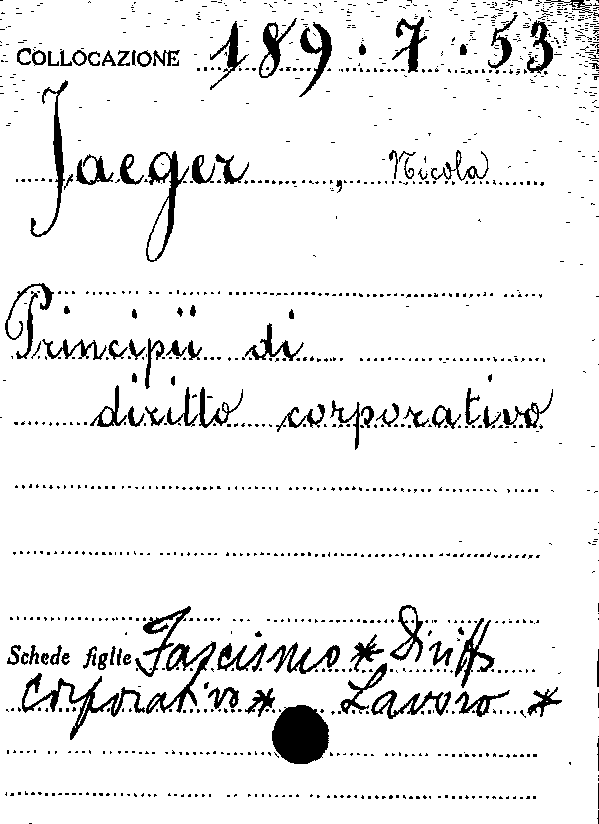 COLLOCAZIONE 189.7.53
Jaeger, Nicola
Principii di
diritto corporativo
Schede figlie Fascismo * Diritto
corporativo * Lavoro *